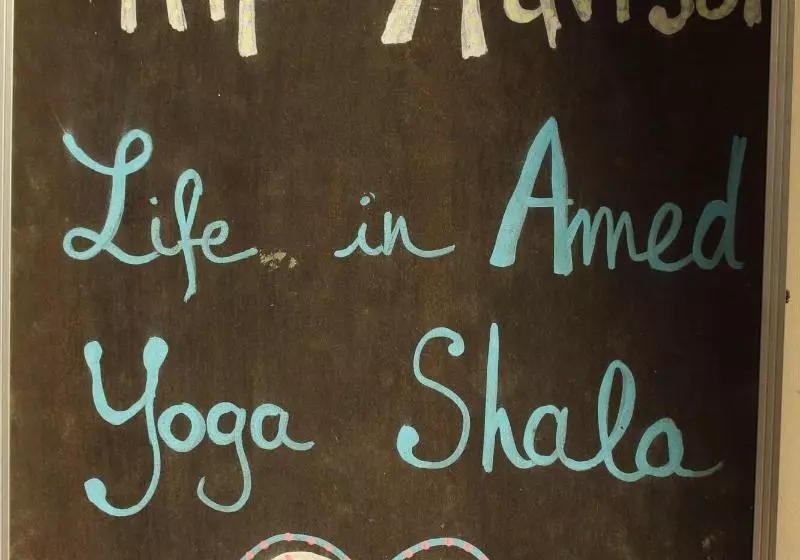 Life in Amed
Yoga Shala